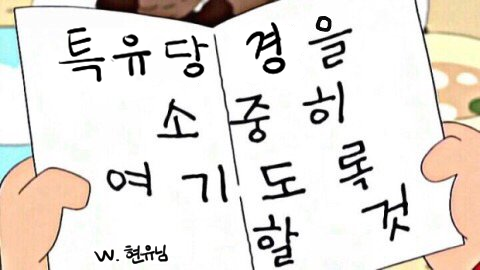 특유당 경을
소중히
여기도록
할 것
w. 현유님